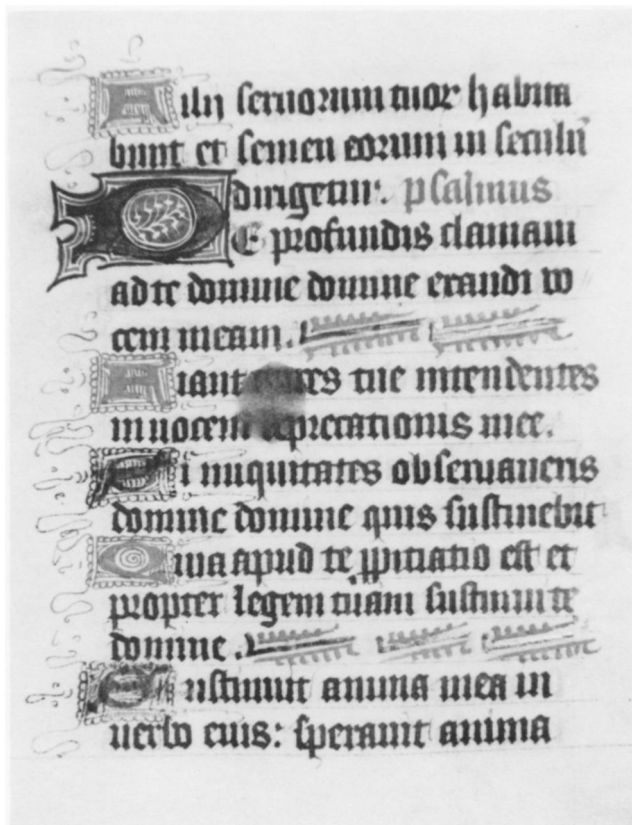 Filij seruorum tuor habita
bunt et semen eorum in seculū
dirigetur. psalmus
De profundis clamaui
ad te domine domine exaudi vo
cem meam.
Fiant aures tue intendentes
in uocem deprecationis mee.
Si iniquitates obseruaueris
domine domine quis sustinebit
Quia apud te ꝓpitiatio est et
propter legem tuam sustinui te
domine.
Sustinuit anima mea in
uerbo eius: sperauit anima